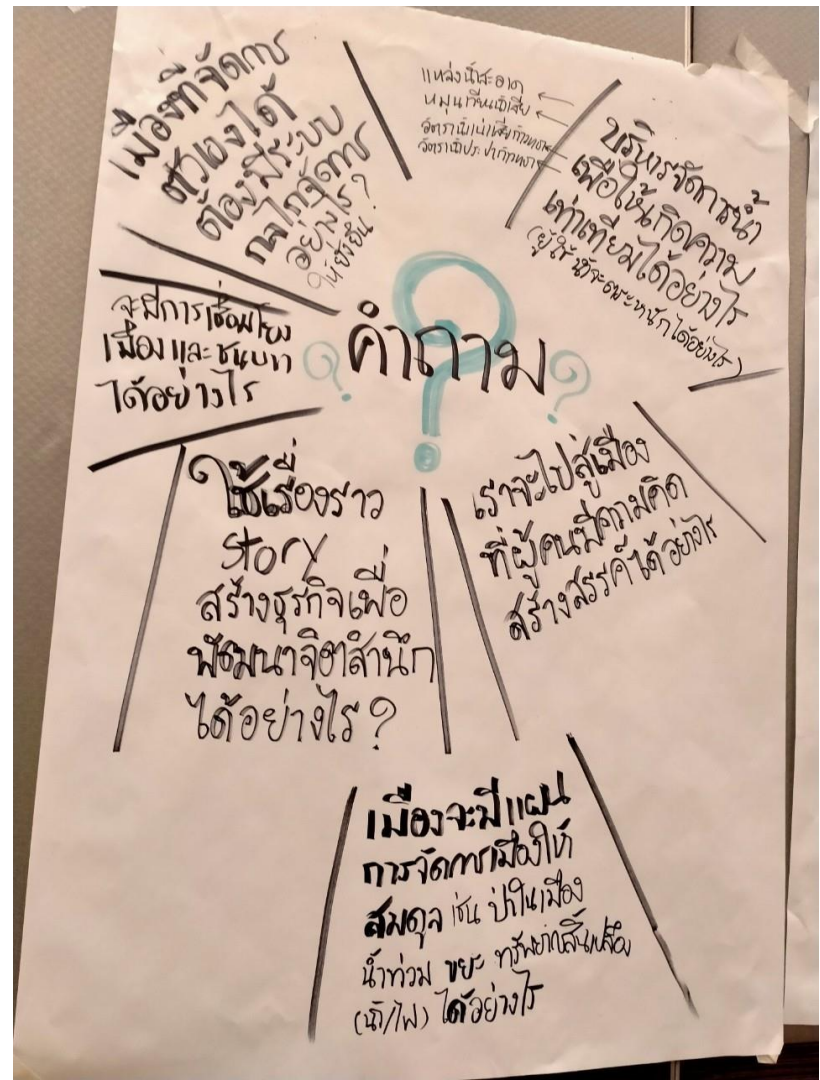 คำถาม
?
?
?
เมืองที่จัดการ
ตัวเองได้
ต้องมีระบบ
กลไกจัดการ
อย่างไร?
ให้ยั่งยืน
แหล่งน้ำสะอาด
หมุนเวียนน้ำเสีย
อัตราน้ำเน่าเสียก้าวหน้า
อัตราน้ำประปาก้าวหน้า
บริหารจัดการน้ำ
เพื่อให้เกิดความ
เท่าเทียมได้อย่างไร
(ผู้ใช้น้ำจะตระหนักได้อย่างไร)
จะมีการเชื่อมโยง
เมืองและชนบท
ได้อย่างไร
ใช้เรื่องราว
story
สร้างธุรกิจเพื่อ
พัฒนาจิตสำนึก
ได้อย่างไร?
เราจะไปสู่เมือง
ที่ผู้คนมีความคิด
สร้างสรรค์ได้อย่างไร
เมืองจะมีแผน
การจัดการเมืองให้
สมดุล เช่น ป่าในเมือง
น้ำท่วม ขยะ ทรัพยากรสิ้นเปลือง
(น้ำ/ไฟ) ได้อย่างไร